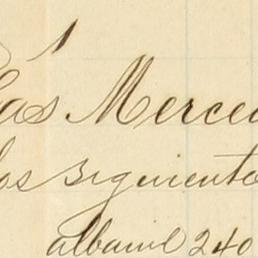 las Merced
los siguiente
albañil 240